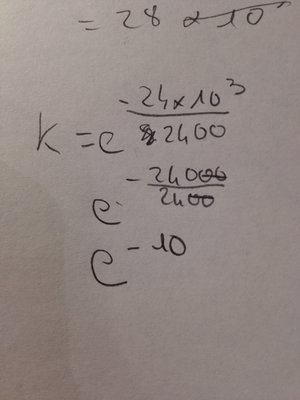 = 28 x 10
K = e^(-24x10^3/2400)
e^(-24000/2400)
e^-10